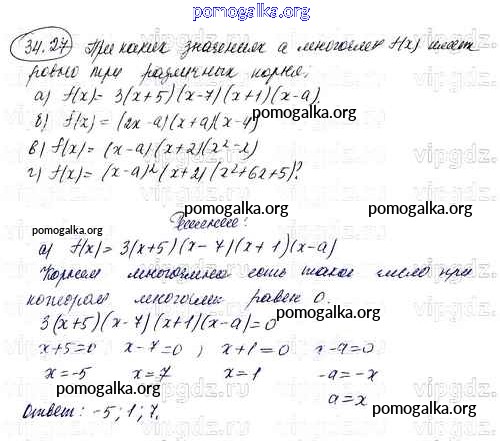 pomogalka.org
34.27 При каких значениях a многочлен f(x) имеет
ровно три различных корня:
а) f(x) = 3(x+5)(x-7)(x+1)(x-a)
pomogalka.org
б) f(x) = (2x-a)(x+a)(x-4)
pomogalka.org
в) f(x) = (x-a)(x+2)(x²-2)
г) f(x) = (x-a)²(x+2)(x²+6x+5)?
pomogalka.org
Решение:
pomogalka.org
а) f(x) = 3(x+5)(x-7)(x+1)(x-a)
Корнем многочлена есть такое число при
pomogalka.org
котором многочлен равен 0.
3(x+5)(x-7)(x+1)(x-a)=0
x+5=0 x-7=0 ; x+1=0 x-a=0
x=-5 x=7 x=1 -a=-x
pomogalka.org
a=x
Ответ: -5; 1; 7.
pomogalka.org